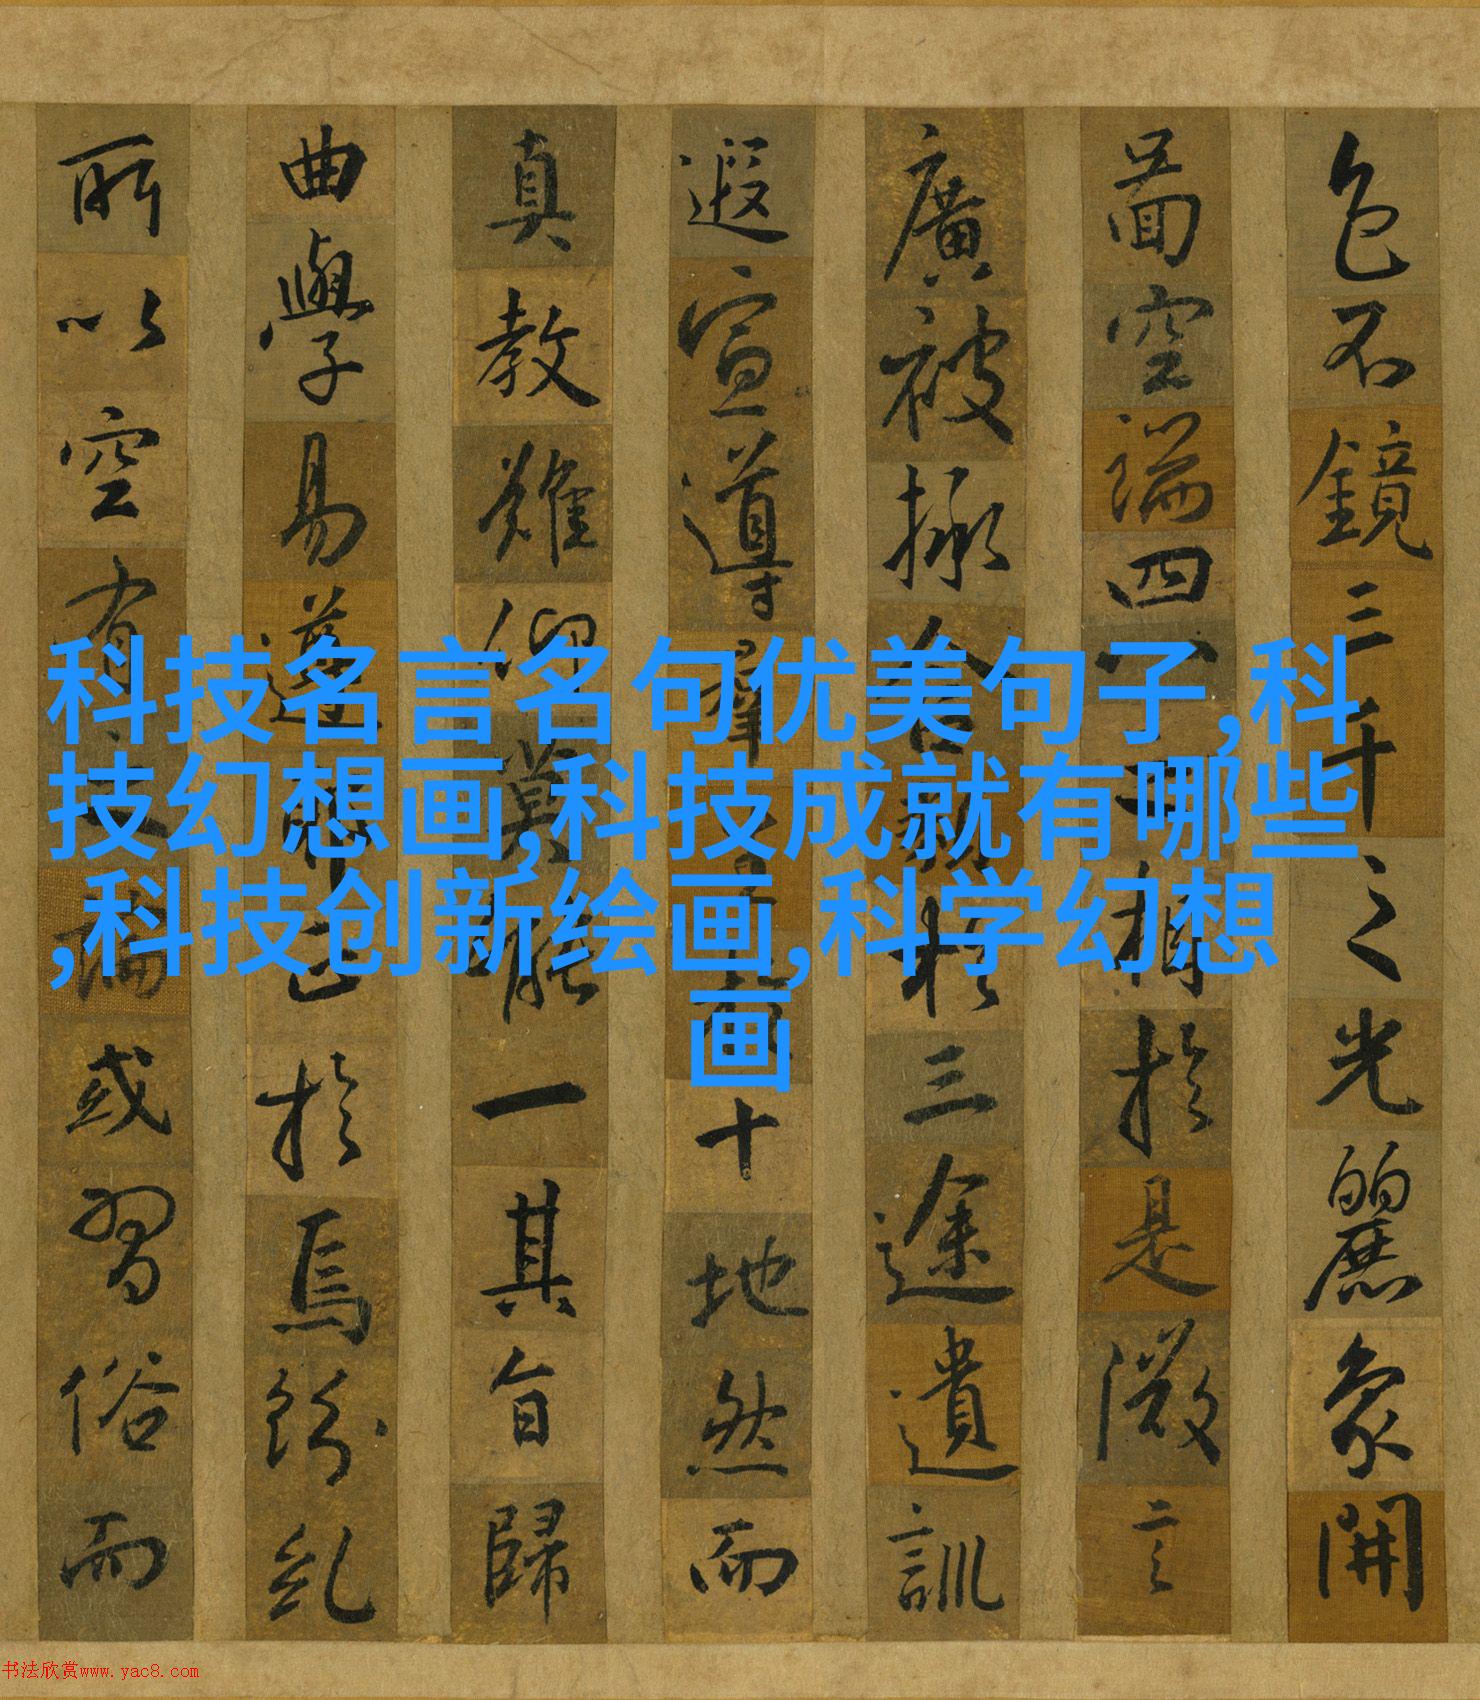 色不鏡三千之光麗象開
啚空端四八之相於是微言
廣被拯含類於三途遺訓
遐宣導羣生於十地然而
真教難仰莫能一其旨歸
曲學易遵邪正於焉紛糺
所以空有之論或習俗而
科技名言名句优美句子,科
技幻想画,科技成就有哪些
,科技创新绘画,科学幻想
画
书法欣赏www.yac8.com